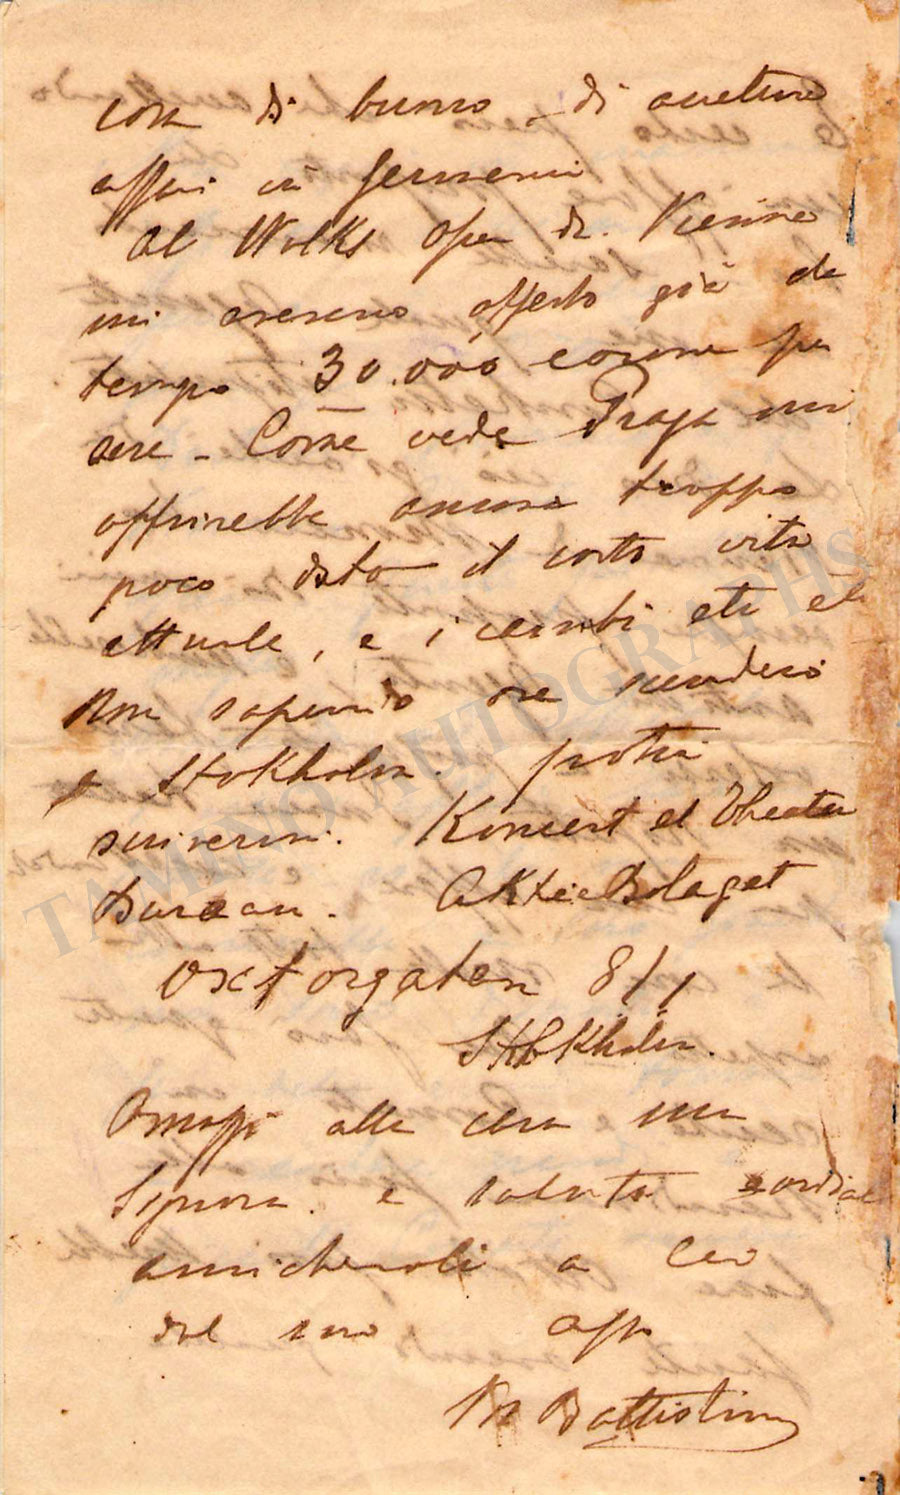 cosa di buono di
affari in Germania
al Wolks Oper di Vienna
mi avevano offerto già da
tempo 30.000 corone per
sera - Come vede Praga mi
offrirebbe ancora troppo
poco dato il costo vita
attuale, e i cambi etc etc
Non sapendo ove scenderò
a Stokholm. potrà
scrivermi. Konsert et Theater
Bureau. AktieBolaget
Oxtorgaten 8/1
Stokholm.
Omaggi alla cara sua
Signora. e saluti cordiali
amichevoli a Lei
dal suo aff
M Battistini
TAMINO AUTOGRAPHS